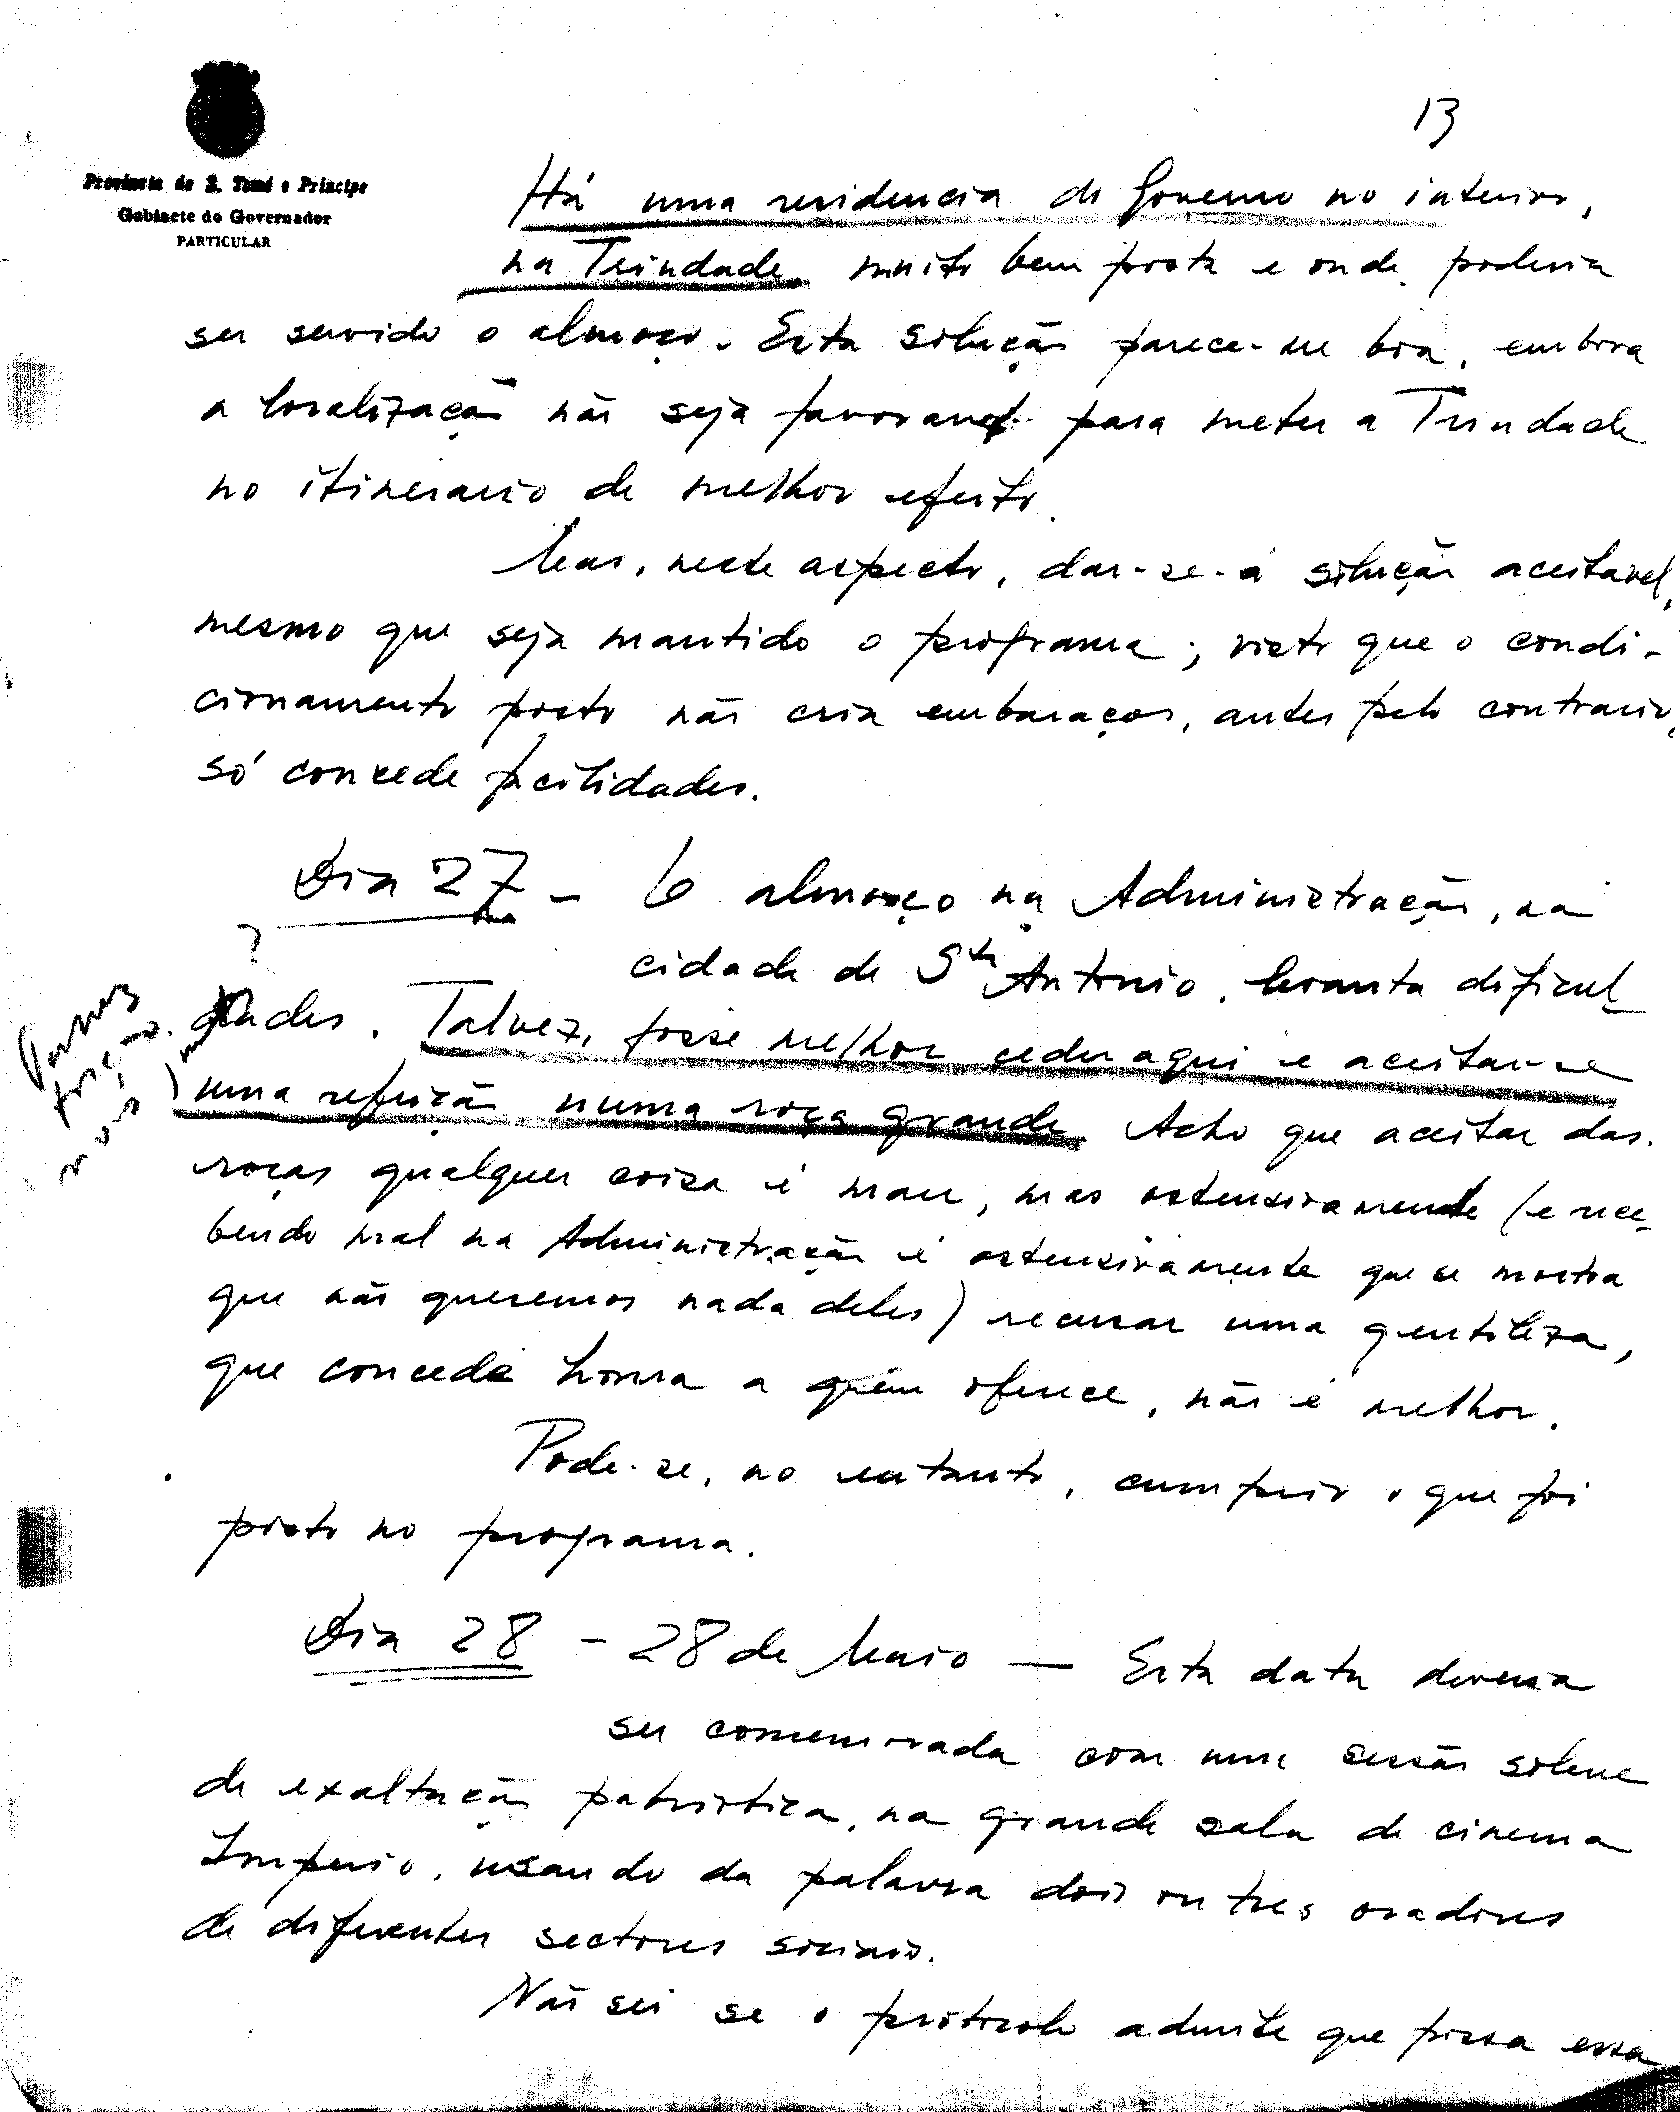 13
Provincia de S. Tomé e Principe
Gabinete do Governador
PARTICULAR
Há uma residencia do Governo no interior,
na Trindade, muito bem posta e onde poderia
ser servido o almoço. Esta solução parece-me boa, embora
a localização não seja favoravel para meter a Trindade
no itinerario de melhor efeito.
Mas, neste aspecto, dar-se-á solução aceitavel,
mesmo que seja mantido o programa; visto que o condi-
cionamento posto não cria embaraços, antes pelo contrario,
só concede facilidades.
Dia 27 - O almoço na Administração, na
cidade de Sto Antonio, levanta dificul-
dades. Talvez, fosse melhor ceder aqui e aceitar-se
uma refeição numa roça grande. Acho que aceitar das
roças qualquer coisa é mau, mas ostensivamente (e rece-
bendo mal na Administração é ostensivamente que se mostra
que não queremos nada deles) recusar uma gentileza,
que concede honra a quem oferece, não é melhor.
Pode-se, no entanto, cumprir o que foi
posto no programa.
Dia 28 - 28 de Maio — Esta data deveria
ser comemorada com uma sessão solene
de exaltação patriotica, na grande sala de cinema
Imperio, usando da palavra dois ou tres oradores
de diferentes sectores sociais.
Não sei se o protocolo admite que possa essa